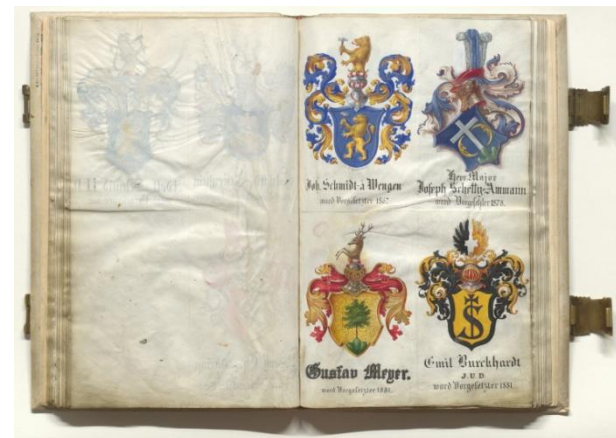 Joh. Schmidt-à Wengen
ward Vorgesetzter 1867.
Herr Major
Joseph Schetty-Ammann
ward Vorgesetzter 1878.
Gustav Meyer.
ward Vorgesetzter 1881.
S
Emil Burckhardt
J.U.D.
ward Vorgesetzter 1881.